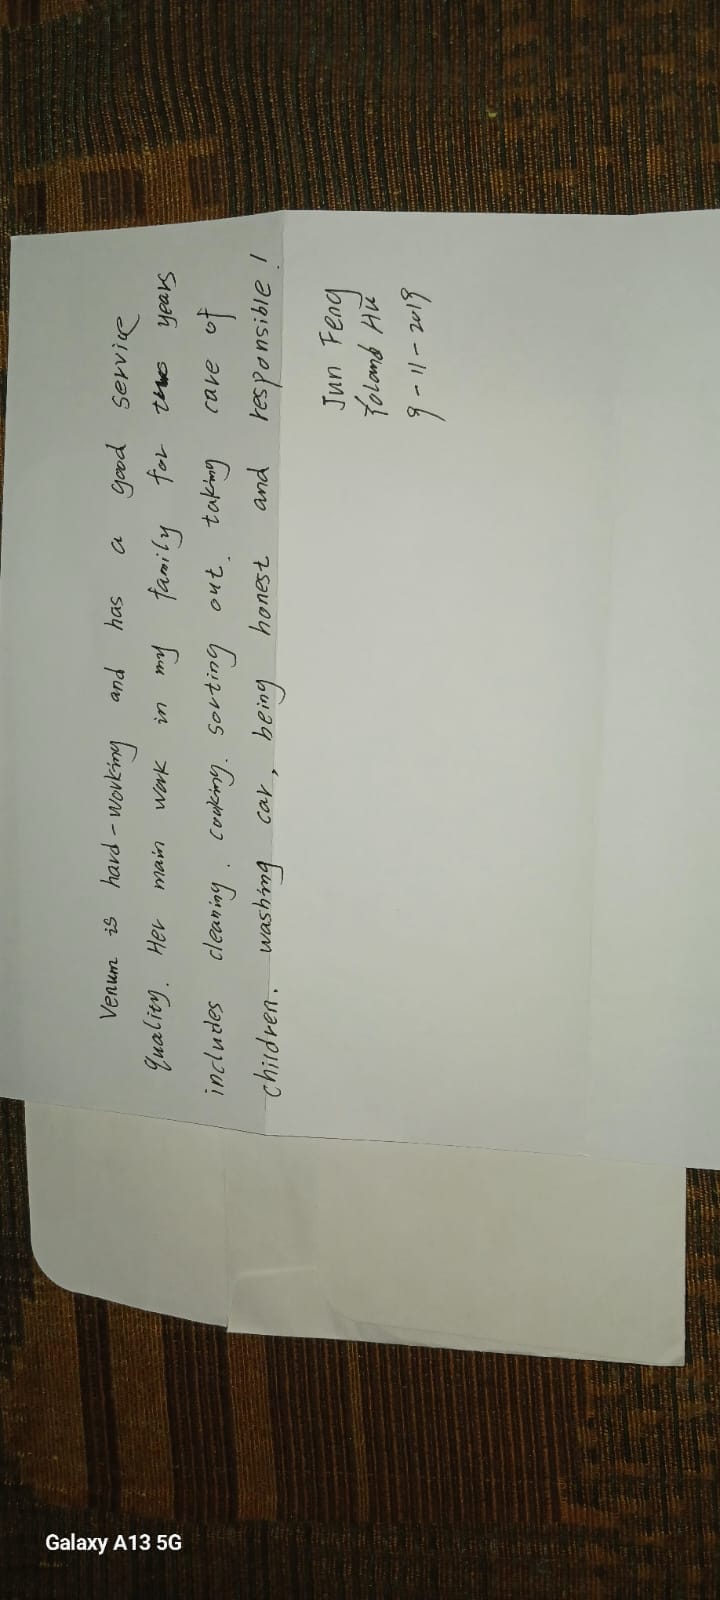 Venum is hard-working and has a good service
quality. Her main work in my family for two years
includes cleaning. cooking. sorting out. taking care of
children. washing car, being honest and responsible!
Jun Feng
Yoland Hu
9-11-2019
Galaxy A13 5G